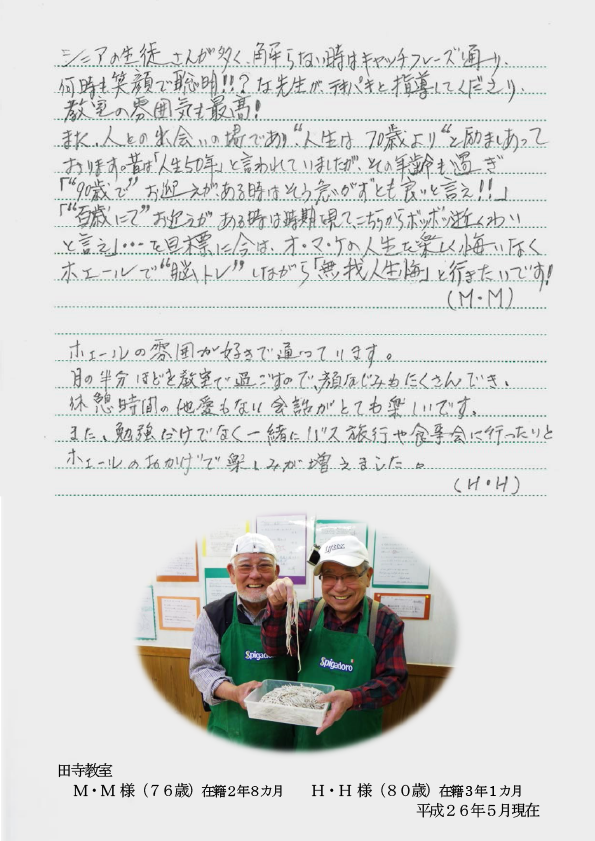 シニアの生徒さんが多く、解らない時はキャッチフレーズ通り、
何時も笑顔で聡明!!?な先生がテキパキと指導してくださり、
教室の雰囲気も最高!
また、人との出会いの場であり“人生は70歳より”と励ましあって
おります。昔は「人生50年」と言われていましたが、その年齢も過ぎ
「“90歳で”お迎えがある時はそう急がずとも良いと言え!!」
「“百歳にて”お迎えがある時は時期見てこちらからボツボツ逝くわい
と言え」…を目標に今は、オ・マ・ケの人生を楽しく悔いなく
ホエールで“脳トレ”しながら「無我人生悔」と行きたいです!
(M・M)
ホエールの雰囲が好きで通っています。
月の半分ほどを教室で過ごすので、顔なじみもたくさんでき、
休憩時間の他愛もない会話がとても楽しいです。
また、勉強だけでなく一緒にバス旅行や食事会に行ったりと
ホエールのおかげで楽しみが増えました。
(H・H)
Spigadoro
Spigadoro
田寺教室
M・M 様(76歳)在籍2年8カ月 H・H 様(80歳)在籍3年1カ月
平成26年5月現在